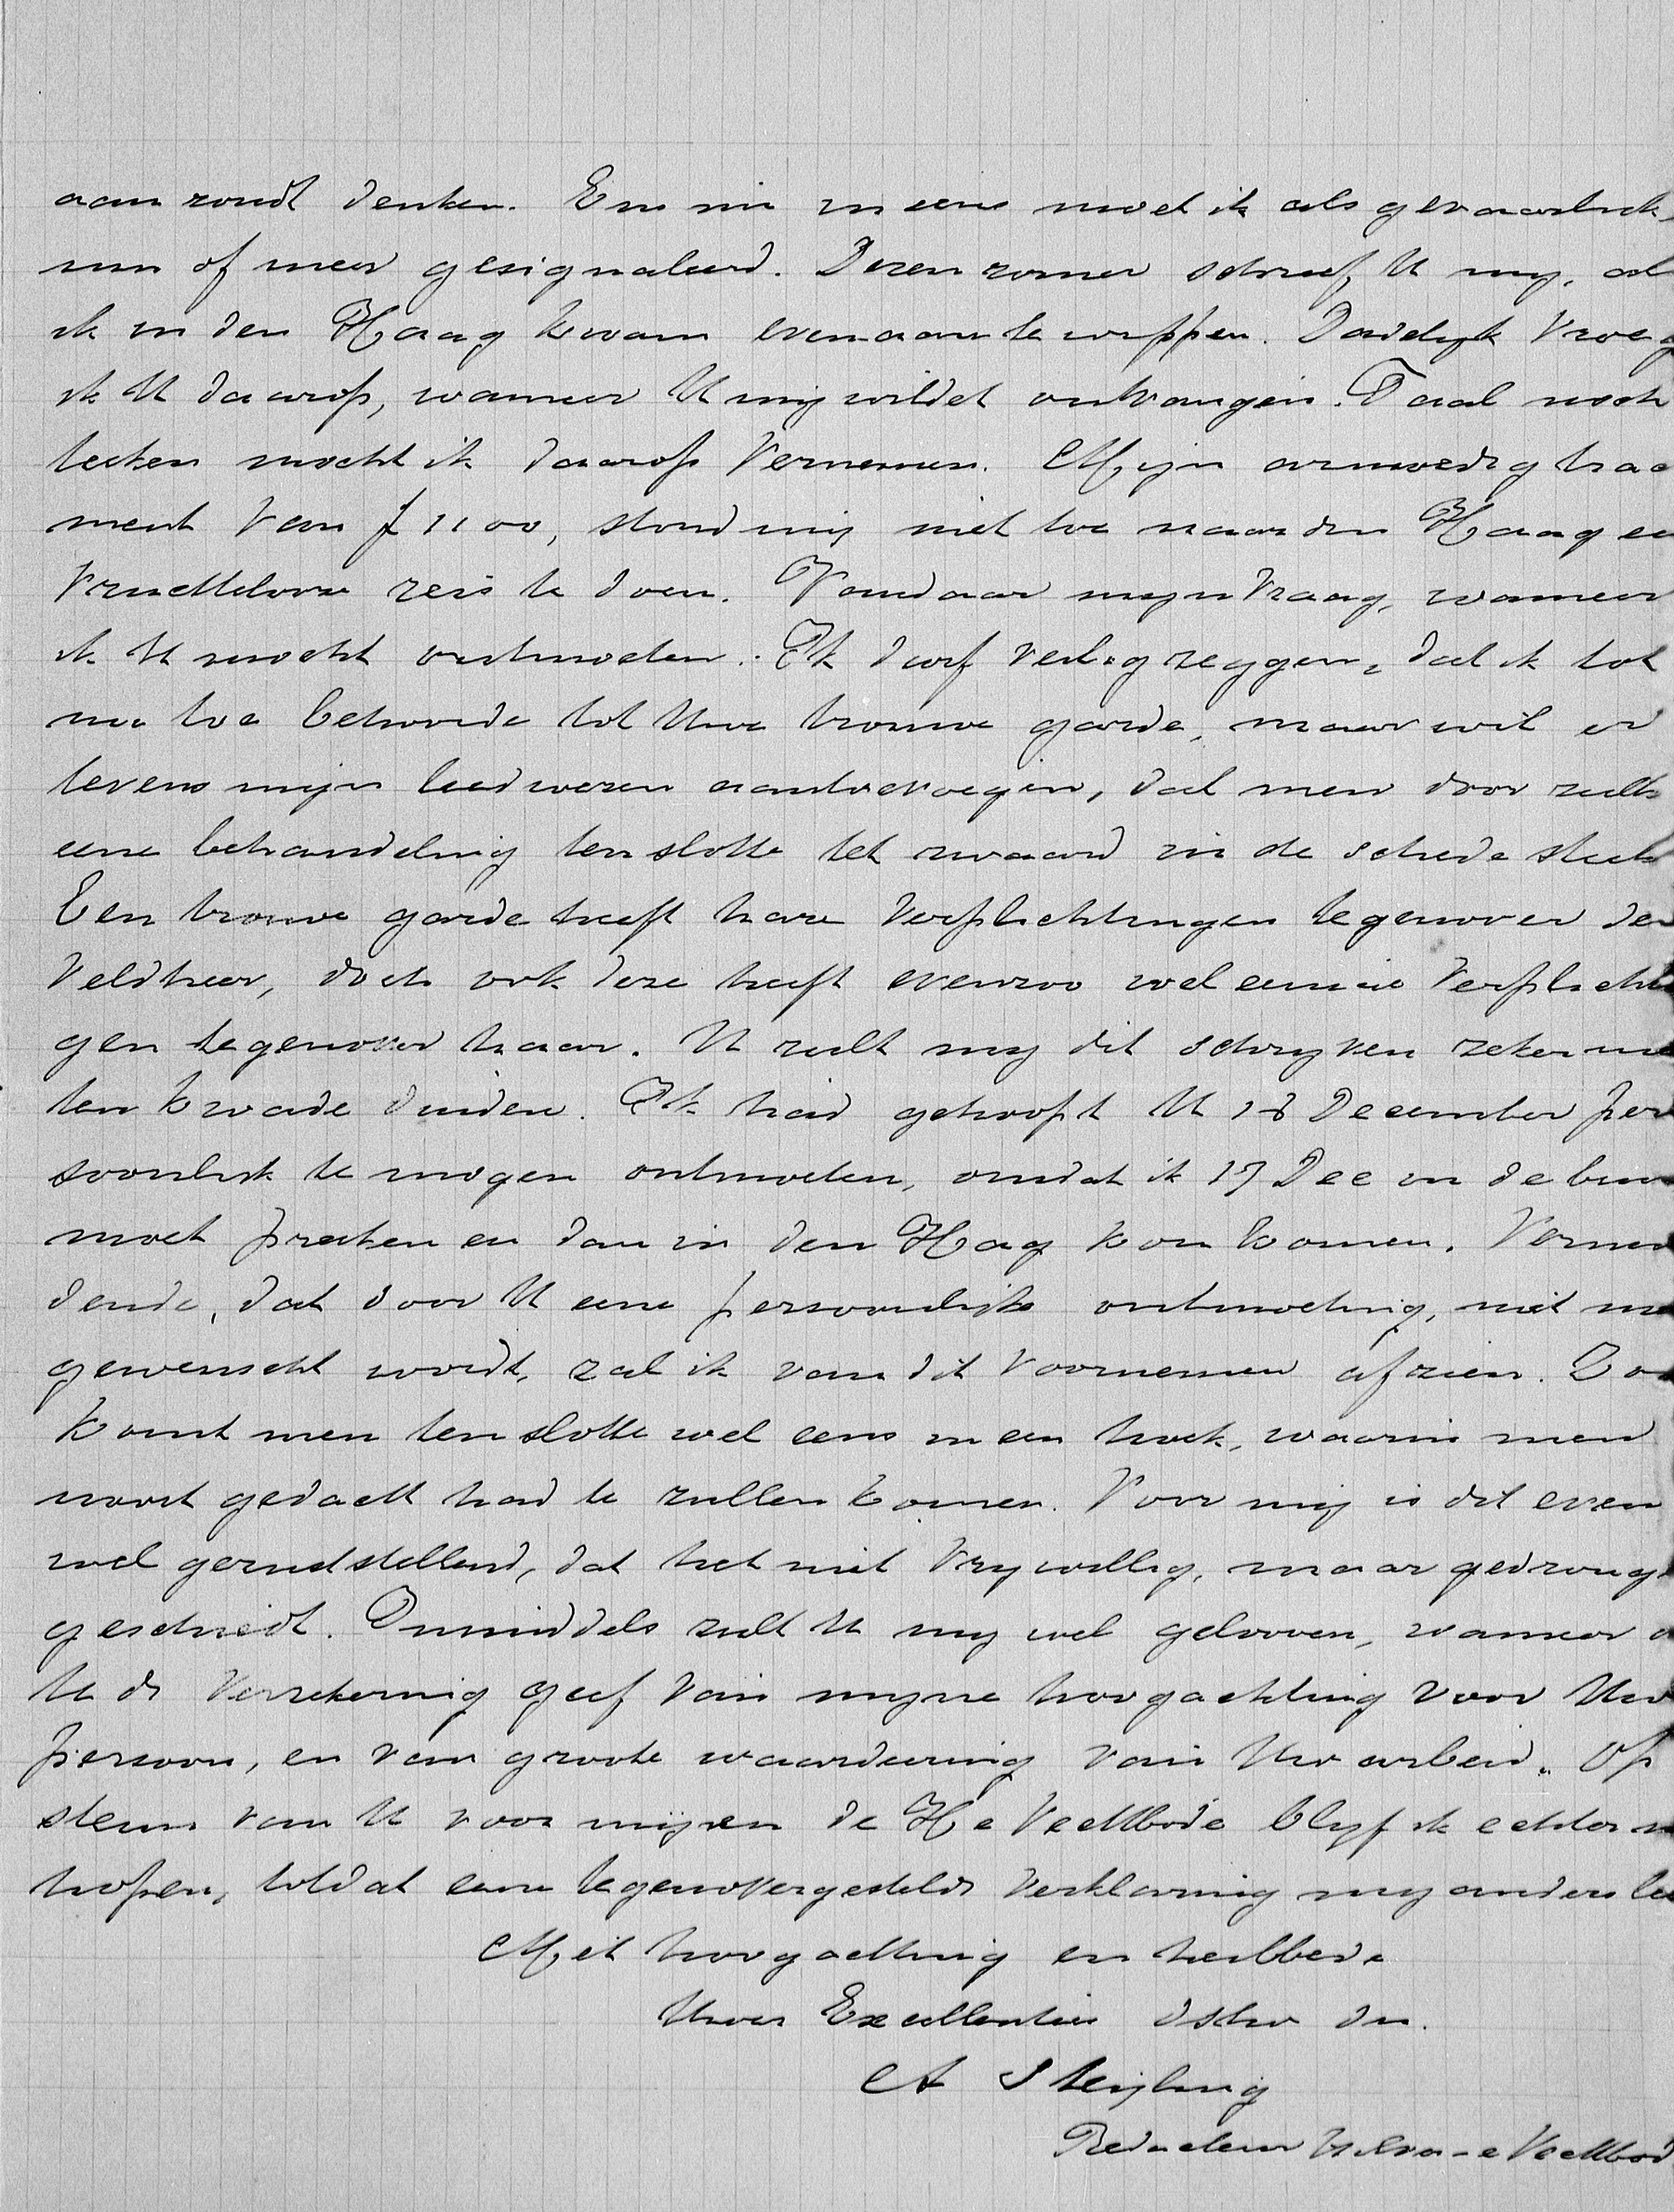 aan zoudt denken. En nu ineens word ik als gevaarlijk,
min of meer gesignaleerd. Dezen zomer schreef U mij, als
ik in den Haag kwam even aan te wippen. Dadelijk vroeg
ik U daarop, wanneer U mij wildet ontvangen. Taal noch
teeken mocht ik daarop vernemen. Mijn armoedig trac
ment van f 1100, stond mij niet toe naar den Haag ee
vruchtelooze reis te doen. Vandaar mijn vraag, wanneer
ik U mocht ontmoeten. Ik durf veilig zeggen, dat ik tot
nu toe behoorde tot Uwe trouwe garde, maar wil er
tevens mijn leedwezen aantoevoegen, dat men door zulk
eene behandeling ten slotte het zwaard in de schede steekt
Een trouwe garde heeft hare verplichtingen tegenover den
Veldheer, doch ook deze heeft evenzoo wel eenige verplicht
gen tegenover haar. U zult mij dit schrijven zeker nie
ten kwade duiden. Ik had gehoopt U 18 December per
soonlijk te mogen ontmoeten, omdat ik 17 Dec in de buur
moet preeken en dan in den Haag kon komen. Vermoe
dende, dat door U eene persoonlijke ontmoeting, niet me
gewenscht wordt, zal ik van dit voornemen afzien. Zoo
komt men ten slotte wel eens in een hoek, waarin men
nooit gedacht had te zullen komen. Voor mij is dit even
wel geruststellend, dat het niet vrijwillig, maar gedrong
geschiedt. Inmiddels zult U mij wel gelooven, wanneer
U de verzekering geef van mijne hoogachting voor Uw
persoon, en van groote waardeering van Uw arbeid. Op
steun van U voor mij en de He Vechtbode blijf ik echter
hopen, totdat eene tegenovergestelde verklaring mij anders lee
Met hoogachting en heilbede
Uwer Excellentie dstw dn.
A Steijling
Redacteur Vechtbod